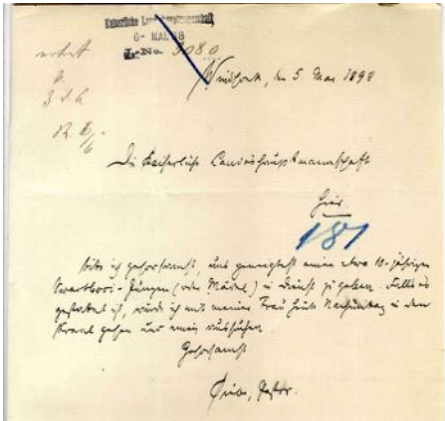 Kaiserliche Landeshauptmannschaft
6- MAI. 98
J.-No. 3080
Windhoek, den 5 Mai 1898
An die Kaiserliche Landeshauptmannschaft
hier.
181
bitte ich gehorsamst, uns geneigtest einen etwa 10-jährigen
Swartbooi-Jungen (oder Mädel) in Dienst zu geben. Falls es
gestattet ist, würde ich mit meiner Frau heute Nachmittag in den
Kraal gehen und einen aussuchen
Gehorsamst
Pastor.